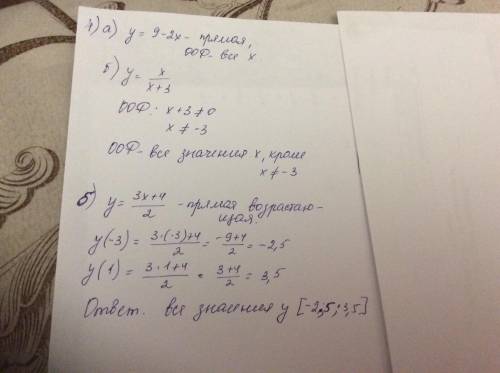 4) а) y = 9-2x - прямая,
ООФ - все x
б) y = x/(x+3)
ООФ: x+3≠0
x ≠ -3
ООФ - все значения x, кроме
x ≠ -3
5) y = (3x+4)/2 - прямая возрастаю-
щая.
y(-3) = (3·(-3)+4)/2 = (-9+4)/2 = -2,5
y(1) = (3·1+4)/2 = (3+4)/2 = 3,5
Ответ. все значения y [-2,5; 3,5]